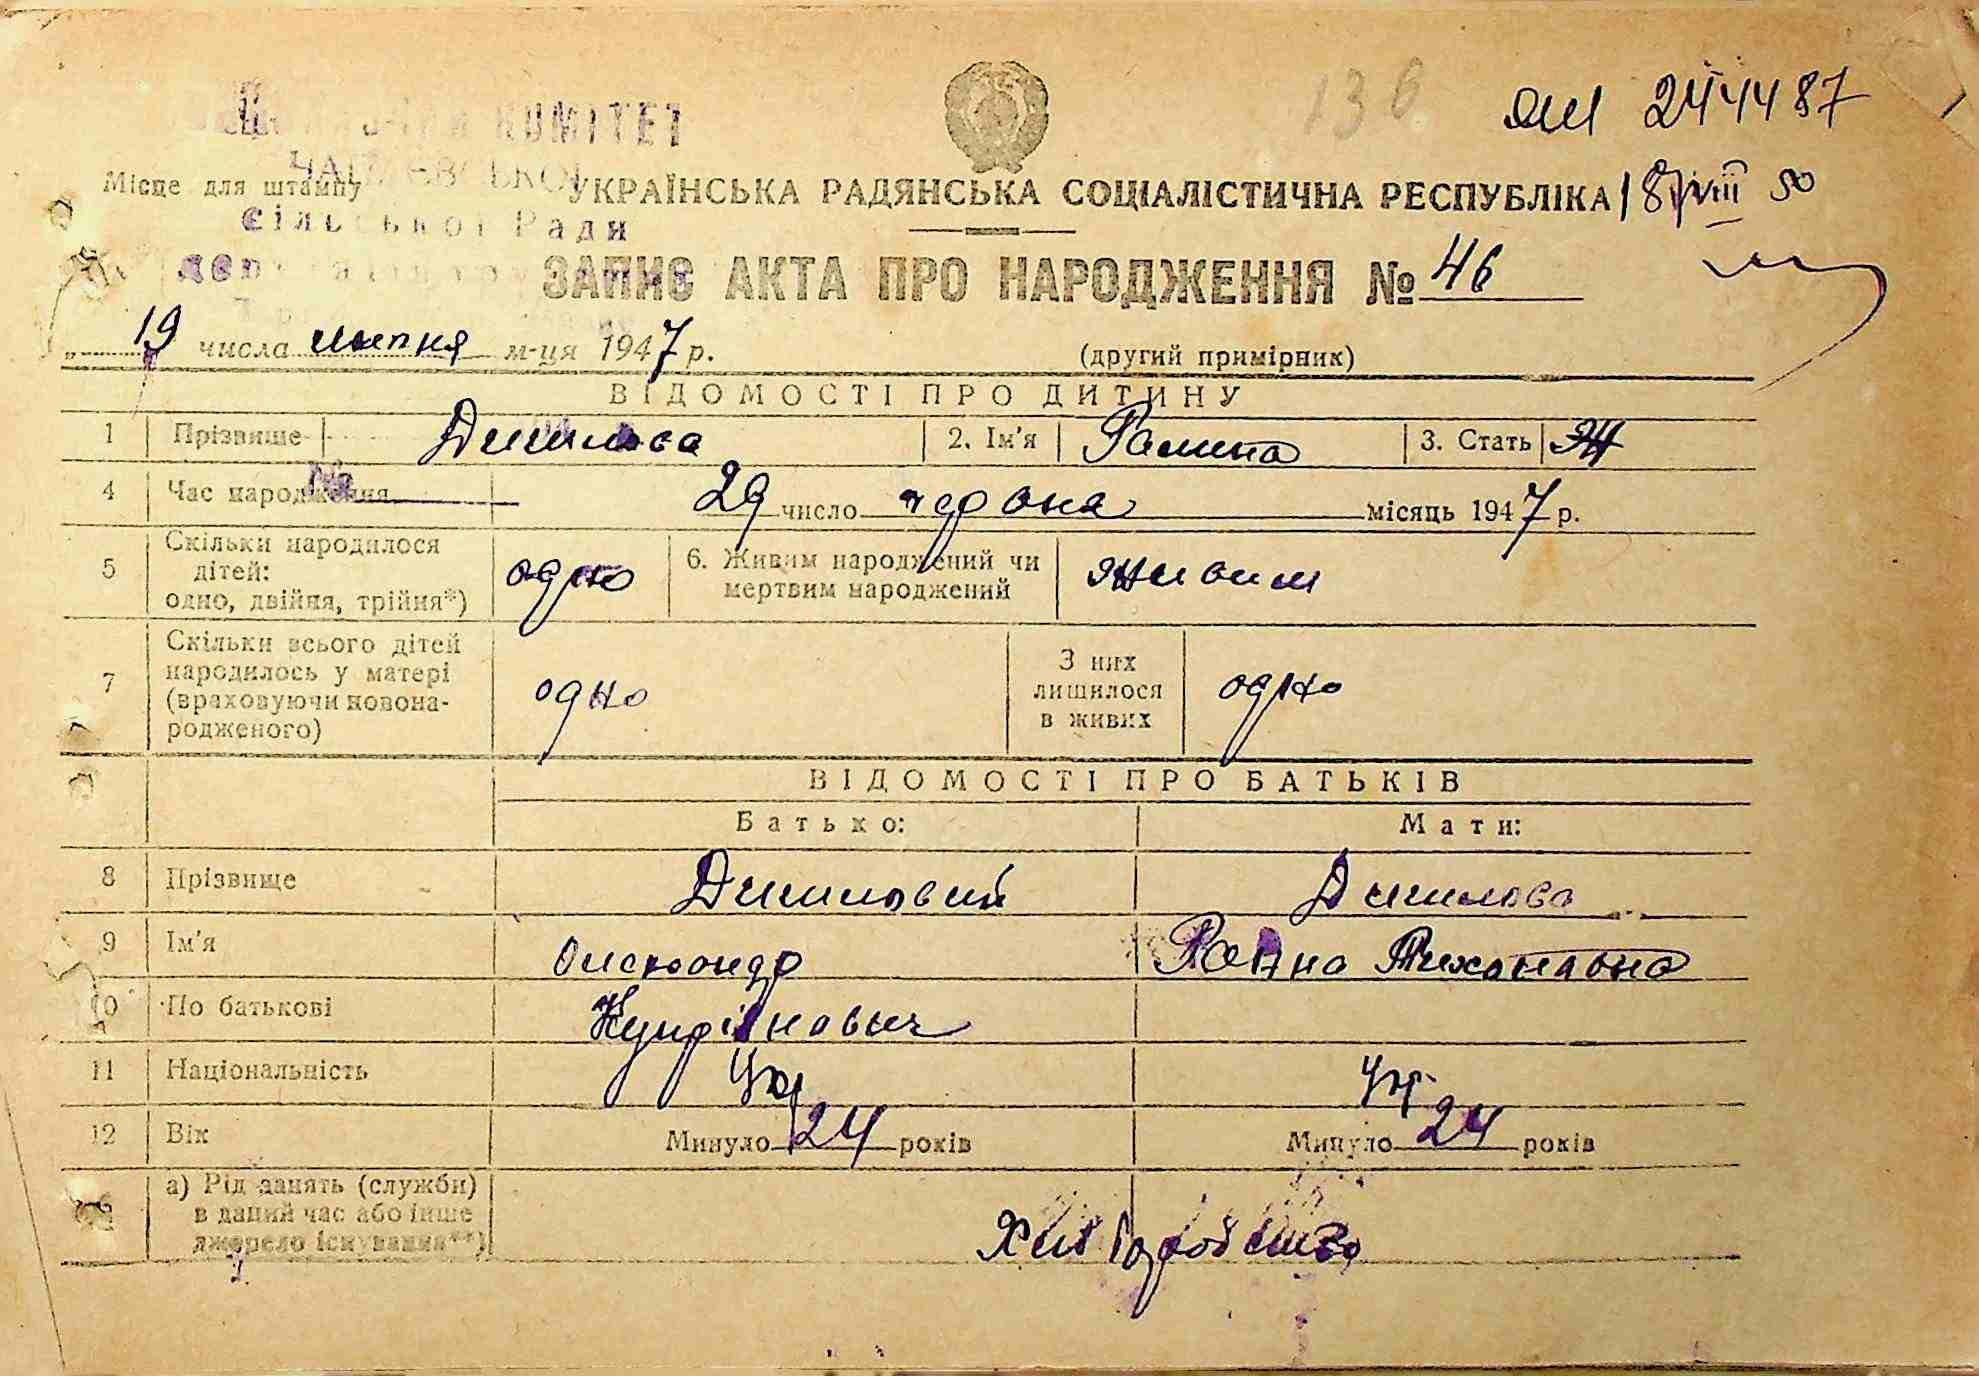 136
ЯШ 244487
КОМІТЕТ
Місце для штампу
УКРАЇНСЬКА РАДЯНСЬКА СОЦІАЛІСТИЧНА РЕСПУБЛІКА
18/VIII 50
сільської Ради
ЗАПИС АКТА ПРО НАРОДЖЕННЯ № 46
„ 19 числа липня м-ця 1947 р.
(другий примірник)
ВІДОМОСТІ ПРО ДИТИНУ
1 Прізвище Дишлова 2. Ім'я Галина 3. Стать Ж
4 Час народження 29 число червня місяць 1947 р.
5 Скільки народилося
дітей:
одно, двійня, трійня*)
одно
6. Живим народжений чи
мертвим народжений
живим
7 Скільки всього дітей
народилось у матері
(враховуючи новона-
родженого)
одно
З них
лишилося
в живих
одно
ВІДОМОСТІ ПРО БАТЬКІВ
Батько: Мати:
8 Прізвище Дишловий Дишлова
9 Ім'я Олександр Ганна Тихонавна
10 По батькові Купріянович
11 Національність Укр Укр
12 Вік Минуло 24 років Минуло 24 років
а) Рід занять (служби)
в даний час або інше
джерело існування**)
Хліборобство